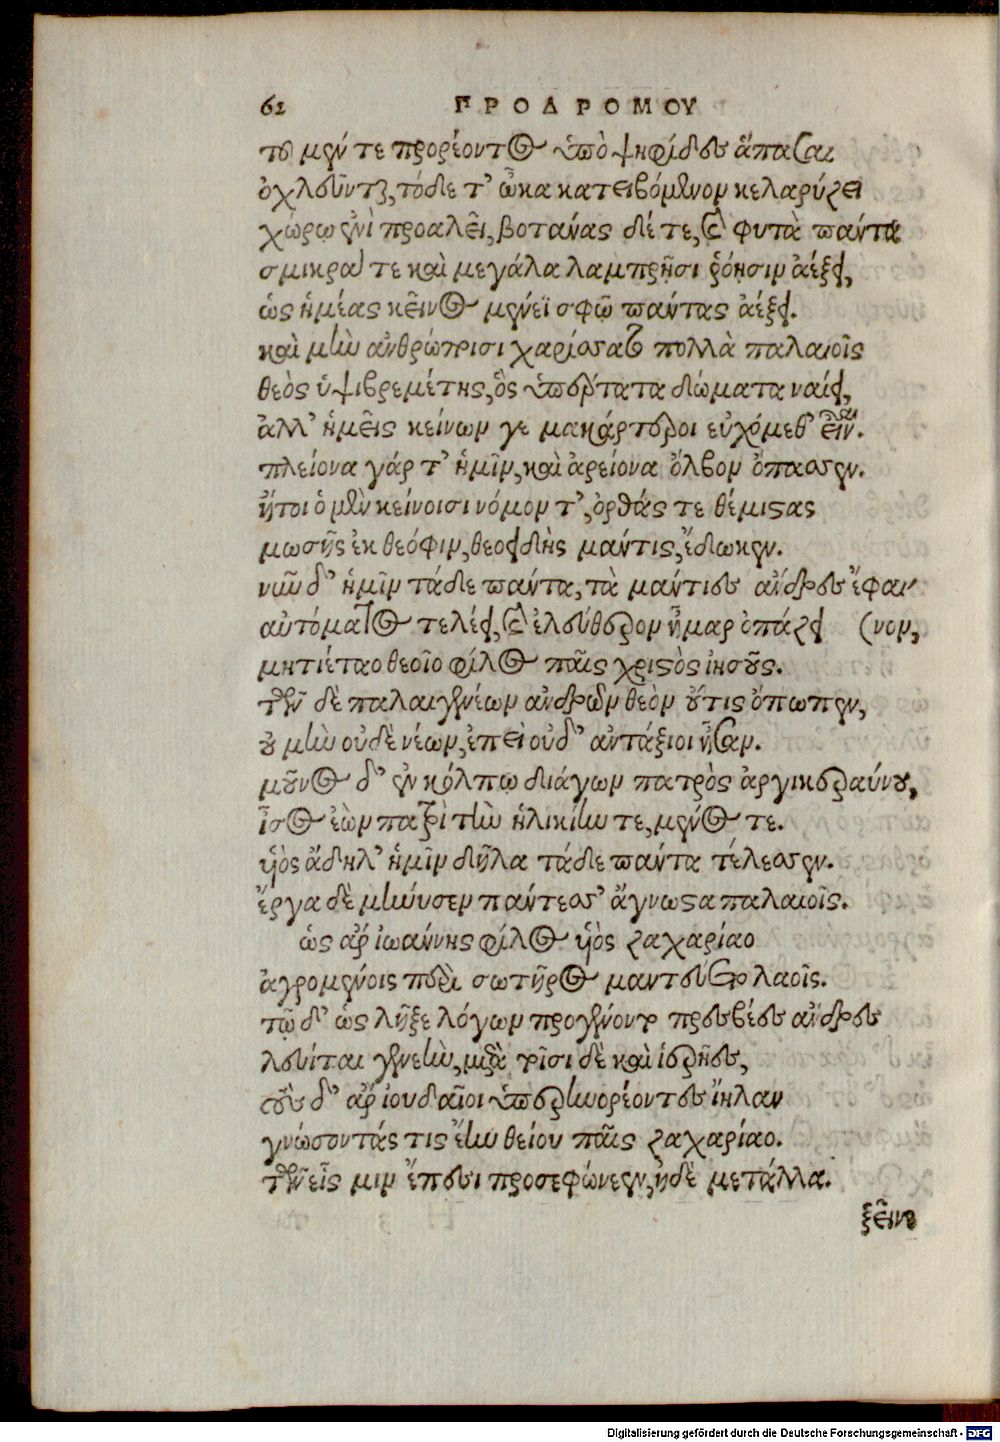 62 ΠΡΟΔΡΟΜΟΥ
τοῦ μέν τε προρέοντος ὑπὸ ψηφίδες ἅπασαι
ὀχλεῦνται, τόδε τ' ὦκα κατειβόμενον κελαρύζει
χώρῳ ἐνὶ προαλεῖ, βοτάνας δέ τε, καὶ φυτὰ πάντα
σμικρά τε καὶ μεγάλα λαμπρῇσι ῥόῃσιν ἀέξει,
ὡς ἡμέας κεῖνος μένεϊ σφῷ πάντας ἀέξει.
καὶ μὴν ἀνθρώποισι χαρίσατο πολλὰ παλαιοῖς
θεὸς ὑψιβρεμέτης, ὃς ὑπέρτατα δώματα ναίει,
ἀλλ' ἡμεῖς κείνων γε μακάρτεροι εὐχόμεθ' εἶναι.
πλείονα γάρ τ' ἡμῖν, καὶ ἀρείονα ὄλβον ὄπασσεν.
ἤτοι ὁ μὲν κείνοισι νόμον τ', ὀρθάς τε θέμιστας
μωσῆς ἐκ θεόφιν, θεοειδὴς μάντις, ἔδωκεν.
νῦν δ' ἡμῖν τάδε πάντα, τὰ μάντιες ἄνδρες ἔφαι-
αὐτόματος τελέει, καὶ ἐλεύθερον ἦμαρ ὀπάζει (νον,
μητιέταο θεοῖο φίλος παῖς χριστὸς ἰησοῦς.
τῶν δὲ παλαιγενέων ἀνδρῶν θεὸν οὔτις ὄπωπεν,
οὐ μὴν οὐδὲ νέων, ἐπεὶ οὐδ' ἀντάξιοι ἦσαν.
μοῦνος δ' ἐν κόλπῳ διάγων πατρὸς ἀργικεραύνου,
ἶσος ἐὼν πατρὶ τὴν ἡλικίην τε, μένος τε.
υἱὸς ἄδηλ' ἡμῖν δῆλα τάδε πάντα τέλεσσεν.
ἔργα δὲ μήνυσεν πάντεσσ' ἄγνωστα παλαιοῖς.
ὡς ἄρ ἰωάννης φίλος υἱὸς ζαχαρίαο
ἀγρομένοις περὶ σωτῆρος μαντεύετο λαοῖς.
τῷ δ' ὡς λῆξε λόγων προγένοντο πρεσβέες ἄνδρες
λευίται γενεὴν, μετὰ τοῖσι δὲ καὶ ἱερῆες,
τοὺς δ' ἄρ ἰουδαῖοι ὑπερηνορέοντες ἴηλαν
γνώσοντάς τις ἔην θείου παῖς ζαχαρίαο.
τῶν εἷς μιν ἔπεσι προσεφώνεεν, ἠδὲ μετάλλα.
ξεῖνε
Digitalisierung gefördert durch die Deutsche Forschungsgemeinschaft - DFG